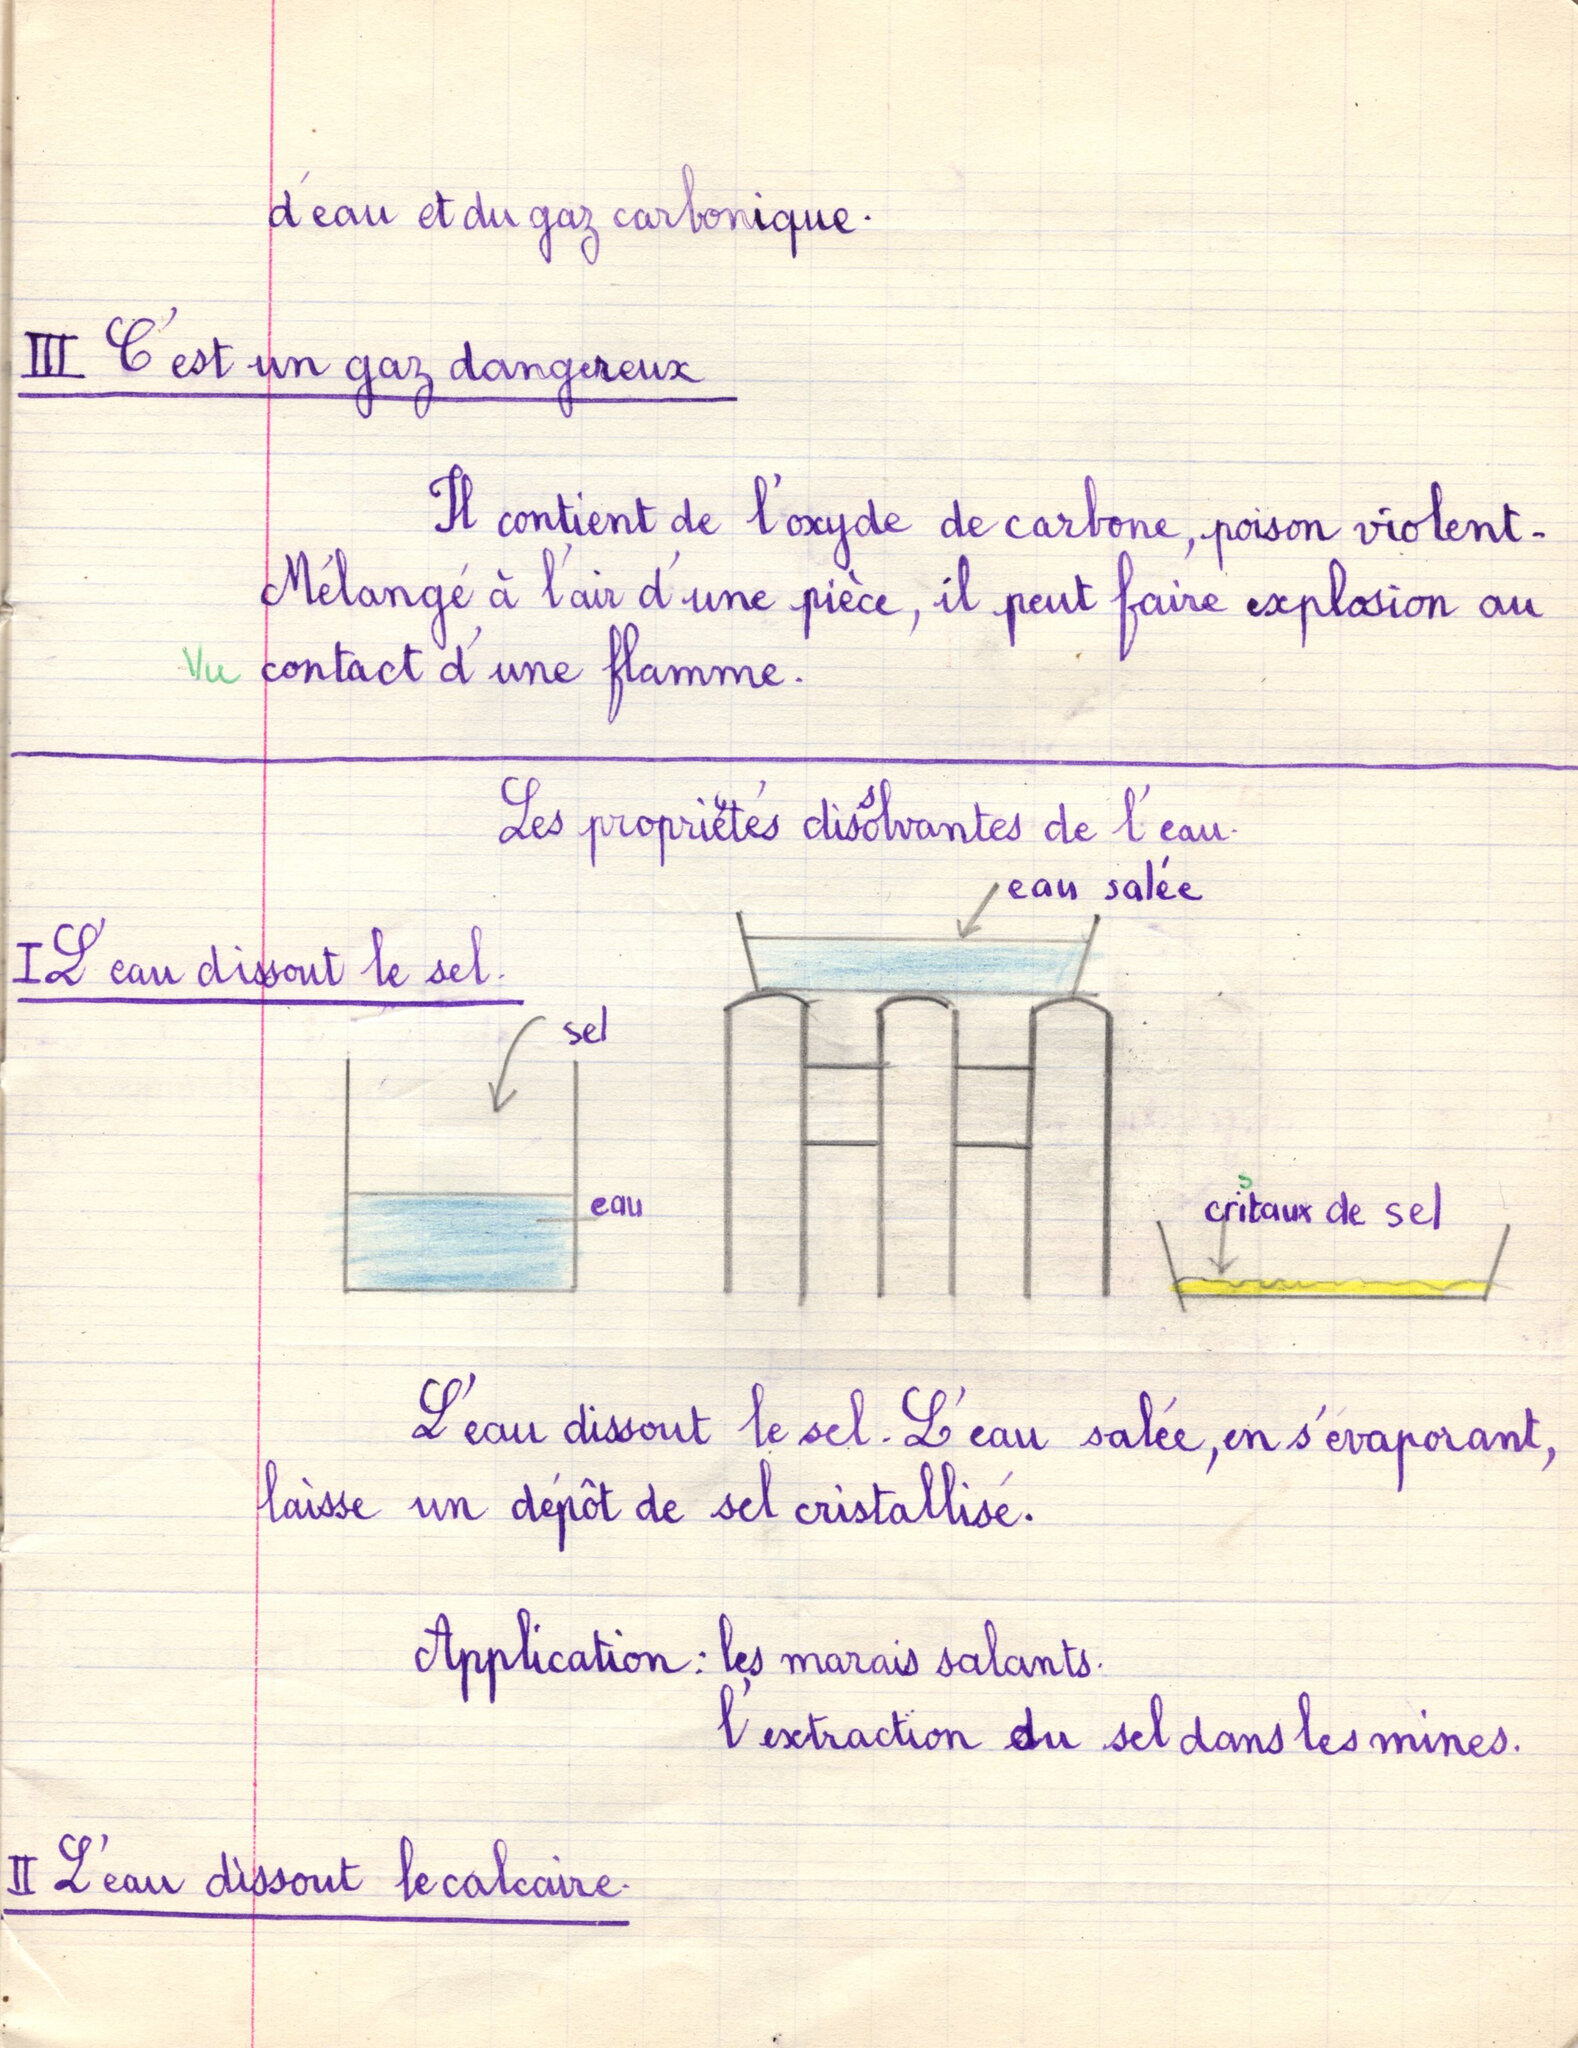 d'eau et du gaz carbonique.
III C'est un gaz dangereux
Il contient de l'oxyde de carbone, poison violent.
Mélangé à l'air d'une pièce, il peut faire explosion au
Vu contact d'une flamme.
Les propriétés dissolvantes de l'eau.
eau salée
I L'eau dissout le sel.
sel
eau
cristaux de sel
L'eau dissout le sel. L'eau salée, en s'évaporant,
laisse un dépôt de sel cristallisé.
Application : les marais salants.
l'extraction du sel dans les mines.
II L'eau dissout le calcaire.